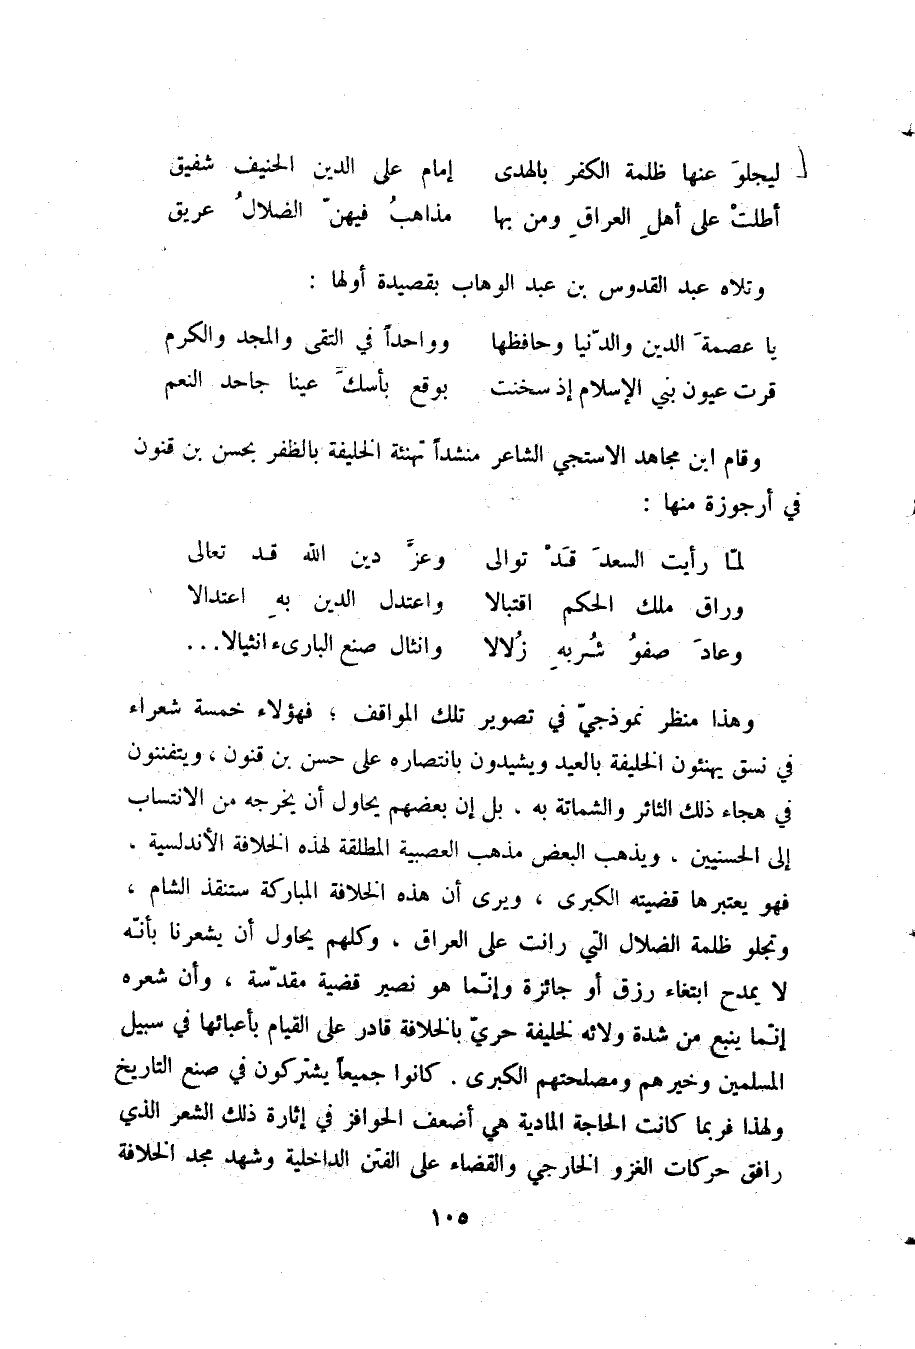 ليجلوَ عنها ظلمة الكفر بالهدى إمام على الدين الحنيف شفيق
أطلتْ على أهلِ العراقِ ومن بها مذاهبُ فيهنّ الضلالُ عريق
وتلاه عبد القدوس بن عبد الوهاب بقصيدة أولها :
يا عصمةَ الدين والدّنيا وحافظها وواحداً في التقى والمجد والكرم
قرت عيون بني الإسلام إذ سخنت بوقع بأسكَ عينا جاحد النعم
وقام ابن مجاهد الاستجي الشاعر منشداً تهنئة الخليفة بالظفر بحسن بن قنون
في أرجوزة منها :
لمّا رأيت السعدَ قَدْ توالى وعزَّ دين الله قد تعالى
وراق ملك الحكم اقتبالا واعتدل الدين بهِ اعتدالا
وعادَ صفوُ شُربهِ زُلالا وانثال صنع البارىء انثيالا...
وهذا منظر نموذجيّ في تصوير تلك المواقف ؛ فهؤلاء خمسة شعراء
في نسق يهنئون الخليفة بالعيد ويشيدون بانتصاره على حسن بن قنون ، ويتفننون
في هجاء ذلك الثائر والشماتة به . بل إن بعضهم يحاول أن يخرجه من الانتساب
إلى الحسنيين . ويذهب البعض مذهب العصبية المطلقة لهذه الخلافة الأندلسية .
فهو يعتبرها قضيته الكبرى ، ويرى أن هذه الخلافة المباركة ستنقذ الشام ،
وتجلو ظلمة الضلال التي رانت على العراق . وكلهم يحاول أن يشعرنا بأنّه
لا يمدح ابتغاء رزق أو جائزة وإنّما هو نصير قضية مقدّسة ، وأن شعره
إنّما ينبع من شدة ولائه لخليفة حريّ بالخلافة قادر على القيام بأعبائها في سبيل
المسلمين وخيرهم ومصلحتهم الكبرى . كانوا جميعاً يشتركون في صنع التاريخ
ولهذا فربما كانت الحاجة المادية هي أضعف الحوافز في إثارة ذلك الشعر الذي
رافق حركات الغزو الخارجي والقضاء على الفتن الداخلية وشهد مجد الخلافة
١٠٥